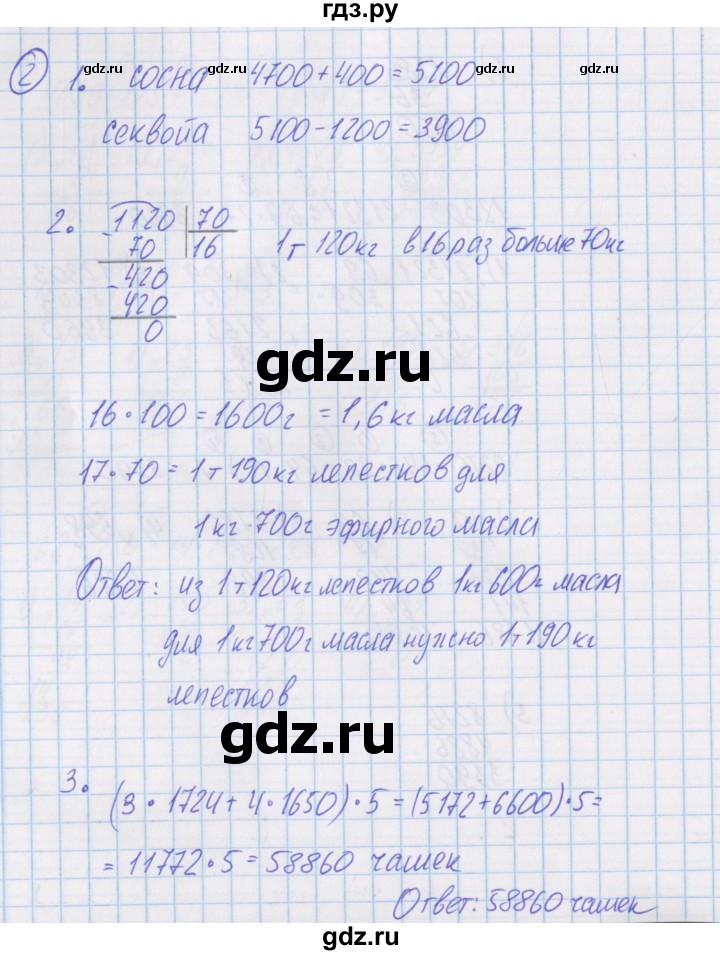 гдз.ру
gdz.ru gdz.ru gdz.ru gdz.ru
2 1. сосна 4700+400=5100
секвойа 5100-1200=3900
2. -1120 70
70 16 1т 120кг в 16 раз больше 70кг
-420
420
0
gdz.ru
16·100=1600г =1,6кг масла
17·70=1т 190кг лепестков для
1кг 700г эфирного масла
Ответ: из 1т120кг лепестков 1кг 600г масла
для 1кг700г масла нужно 1т190кг
лепестков
gdz.ru
3. (3·1724+4·1650)·5=(5172+6600)·5=
=11772·5=58860 чашек
Ответ: 58860 чашек
gdz.ru